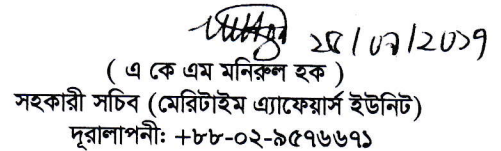 ২৫/০৭/২০১৭
( এ কে এম মনিরুল হক )
সহকারী সচিব (মেরিটাইম এ্যাফেয়ার্স ইউনিট)
দূরালাপনী: +৮৮-০২-৯৫৭৬৬৭১